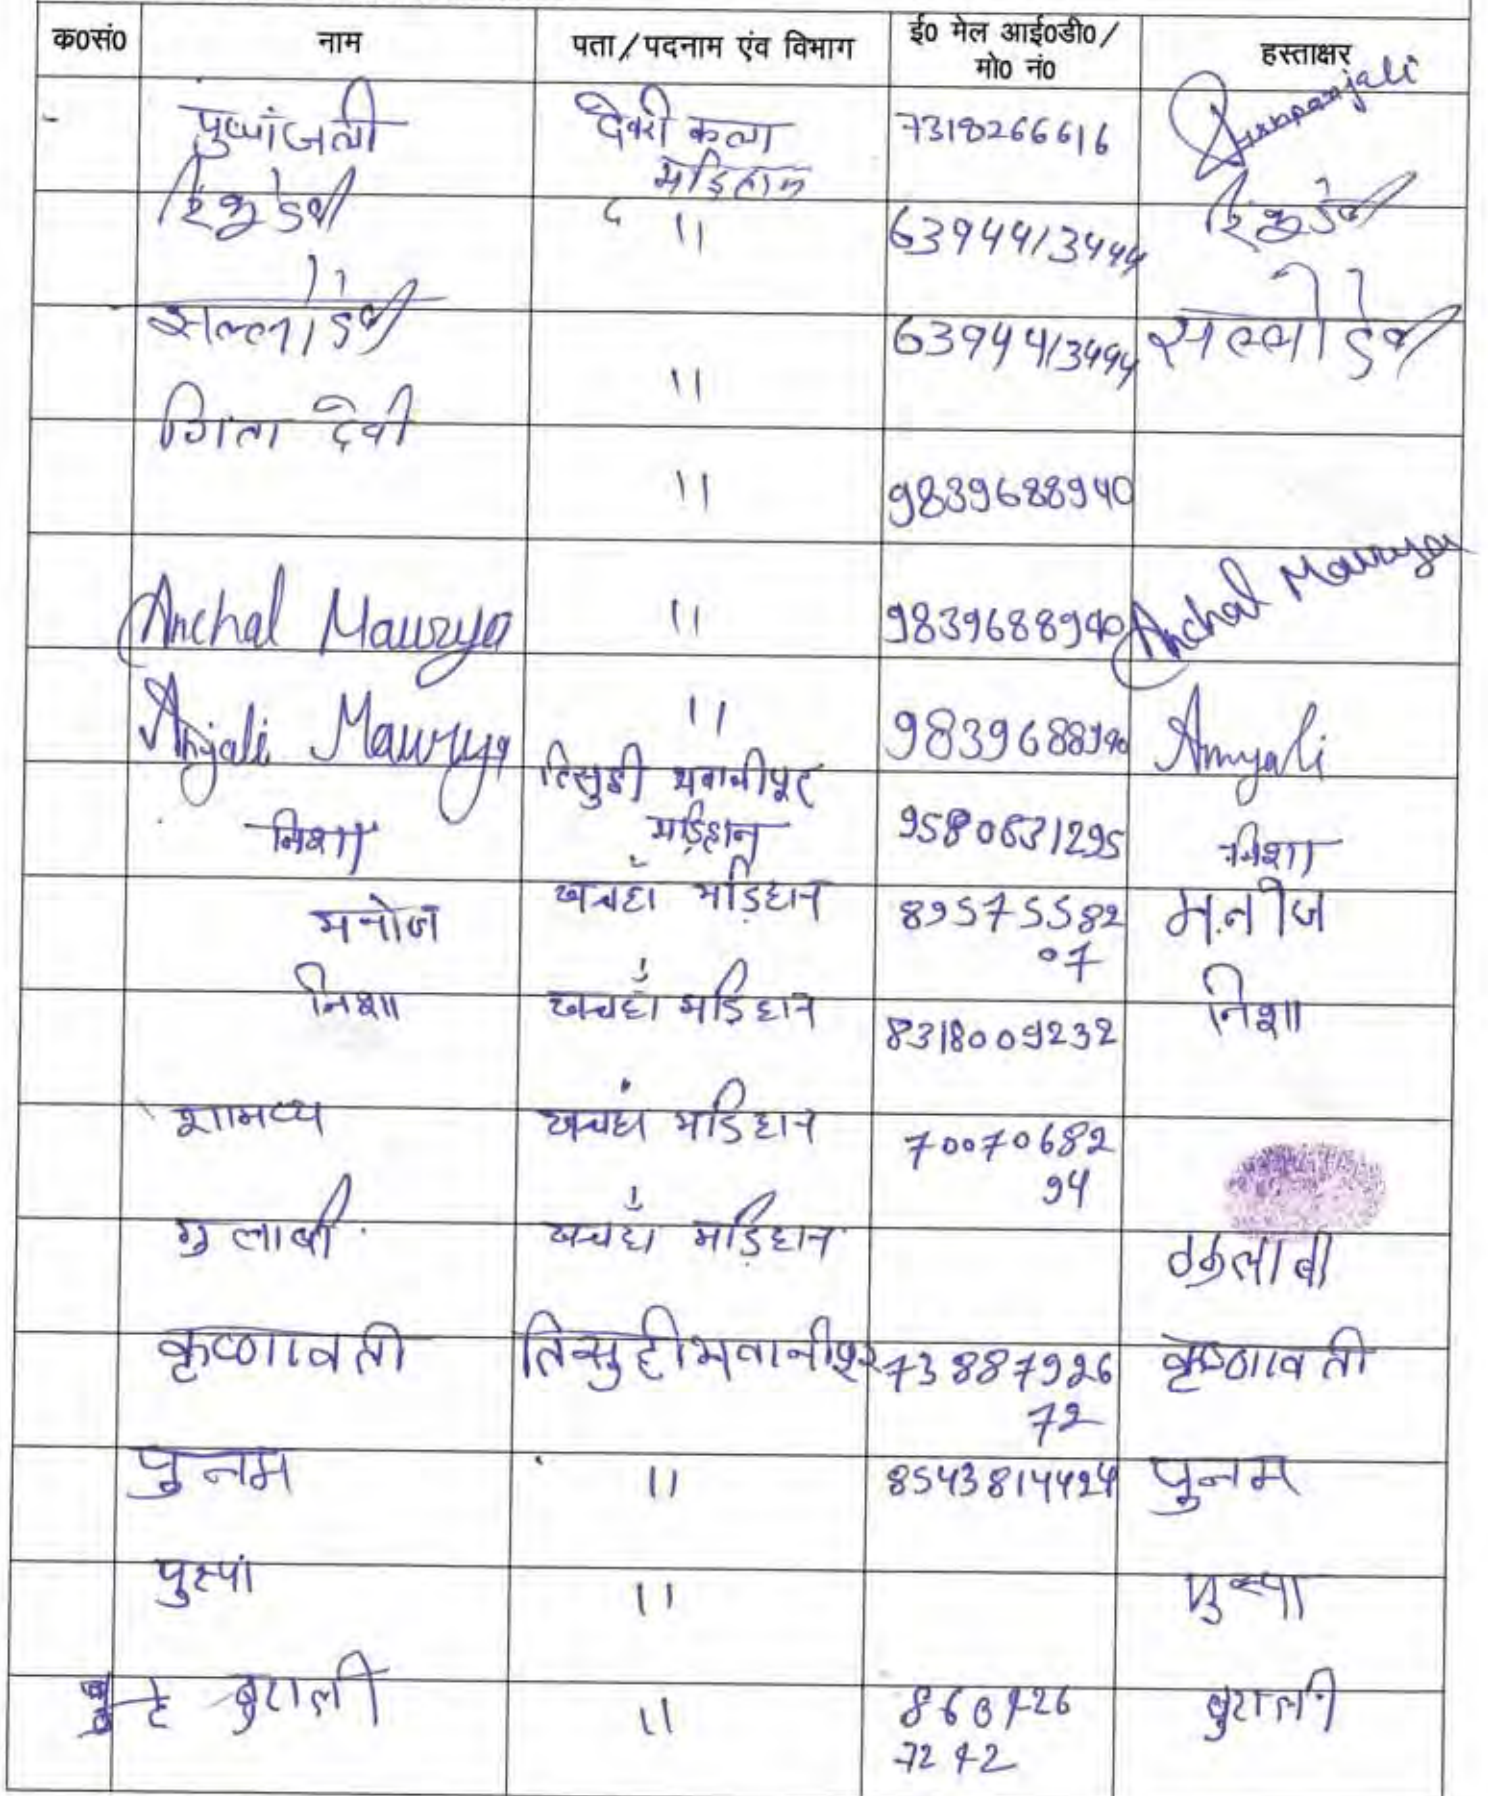 क0सं0 नाम पता/पदनाम एंव विभाग ई0 मेल आई0डी0/ हस्ताक्षर
मो0 नं0
पुष्पांजली देवरी कला 7318266616 Puspanjali
मडिहान
रिंकू देवी " 6394413494 रिंकू देवी
" 
सल्लो देवी " 6394413494 सल्लो देवी
गिता देवी " 9839688940
Anchal Maurya " 9839688940 Anchal Maurya
Anjali Maurya " 9839688940 Anjali
तिसुही भवानीपुर
निशा मड़िहान 9580631295 निशा
मनोज खचहाँ मड़िहान 89575582 मनोज
07
निशा खचहाँ मडिहान 8318009232 निशा
खचहां मडिहान 70070682
94
गुलाबी खचहाँ मड़िहान
कृष्णावती तिसुही भवानीपुर 73887926 कृष्णावती
72
पुनम " 8543814424 पुनम
पुस्पा " पुस्पा
बुटाली " बुटाली
7242